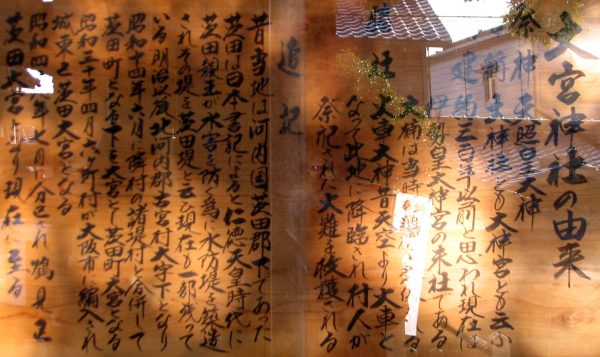 大宮神社の由来
祭神 天照皇大神
大神社とも大神宮とも云ふ
建約三百年以前と思われ現在は
伊勢皇大神宮の末社である
大楠は当時
社 火車大神昔天空より火車と
なって此地に降臨され村人が
祭祀された火難を救護される
追記
昔当地は河内国茨田郡下であった
茨田は日本書記によると仁徳天皇時代に
茨田親王が水害を防ぐ為に水防堤を築造
されその堤を茨田堤と云う現在も一部残って
いる明治以後北河内郡古宮村大字下となり
昭和十四年六月に隣村の諸堤村と合併して
茨田町となる下を大宮として茨田町大宮となる
昭和三十年四月六ヶ町村が大阪市へ編入され
城東区茨田大宮となる
昭和四十九年七月分区され鶴見区
茨田大宮となり現在に至る